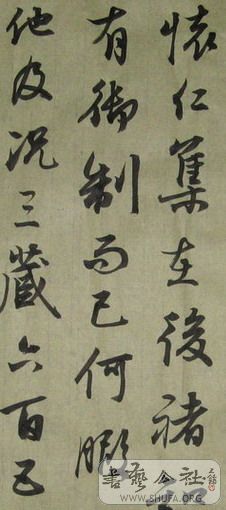 懷仁集在後褚
有御制而已何暇
他及況三藏六百五
書藝公社
WWW.SHUFA.ORG